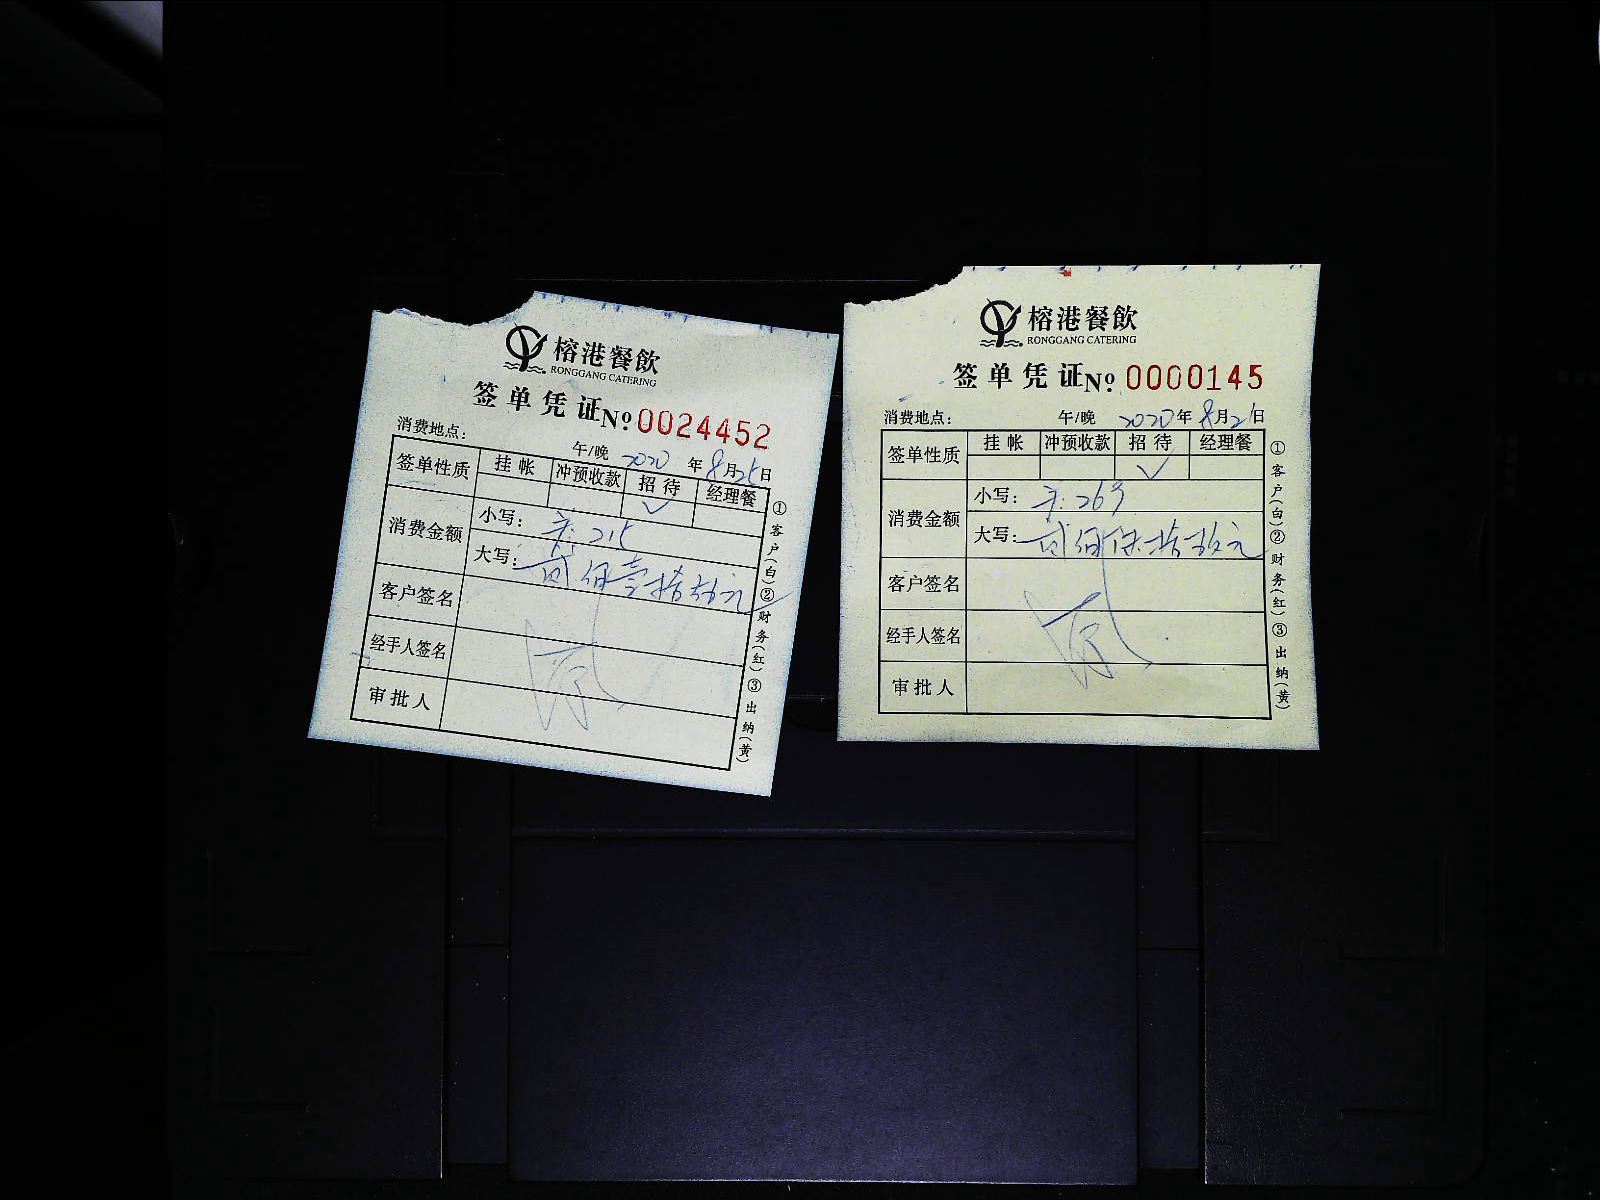 榕港餐飲
RONGGANG CATERING
签单凭证 №0024452
消费地点：
午/晚 2020年8月25日
签单性质 挂帐 冲预收款 招待 经理餐
✓
消费金额
小写： 215
大写： 贰佰壹拾伍元
客户签名
经手人签名
审批人
①客户(白)②财务(红)③出纳(黄)
榕港餐飲
RONGGANG CATERING
签单凭证 №0000145
消费地点： 午/晚 2020年8月21日
签单性质 挂帐 冲预收款 招待 经理餐
✓
消费金额
小写： 269
大写： 贰佰陆拾玖元
客户签名
经手人签名
审批人
①客户(白)②财务(红)③出纳(黄)